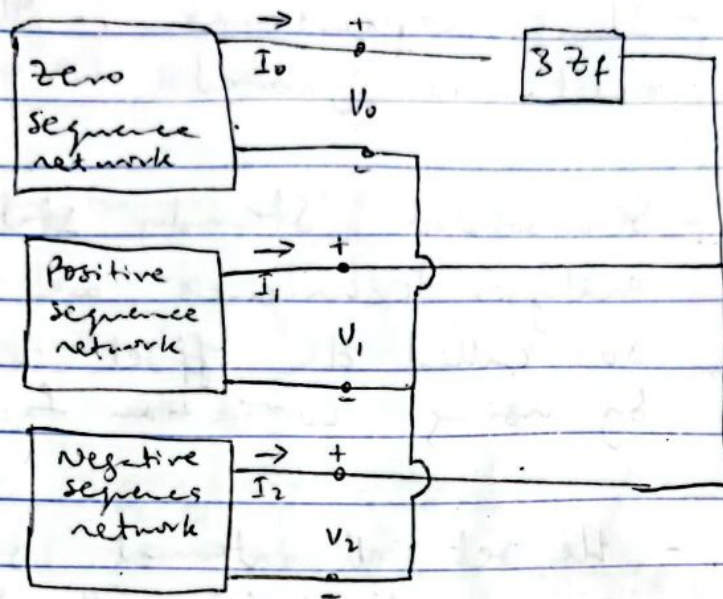 Zero
sequence
network
I₀
+
V₀
-
3 Zf
Positive
sequence
network
I₁
+
V₁
-
Negative
sequence
network
I₂
+
V₂
-